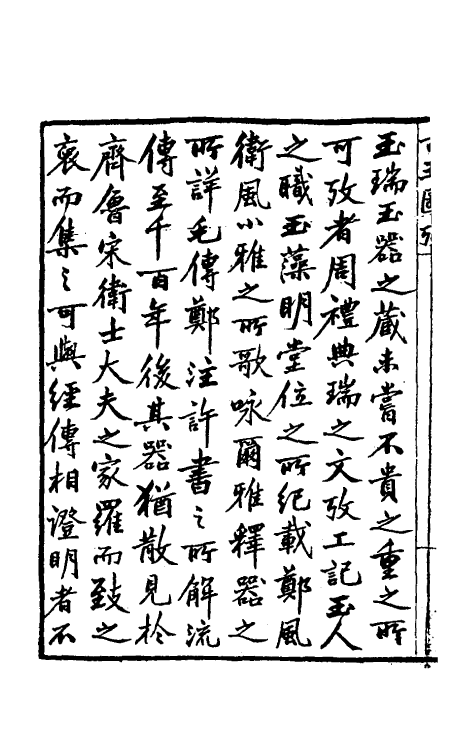 古玉圖攷
玉瑞玉器之藏未嘗不貴之重之所
可攷者周禮典瑞之文攷工記玉人
之職玉藻明堂位之所紀載鄭風
衛風小雅之所歌咏爾雅釋器之
所詳毛傳鄭注許書之所解流
傳至千百年後其器猶散見於
齊魯宋衛士大夫之家羅而致之
裒而集之可與經傳相證明者不